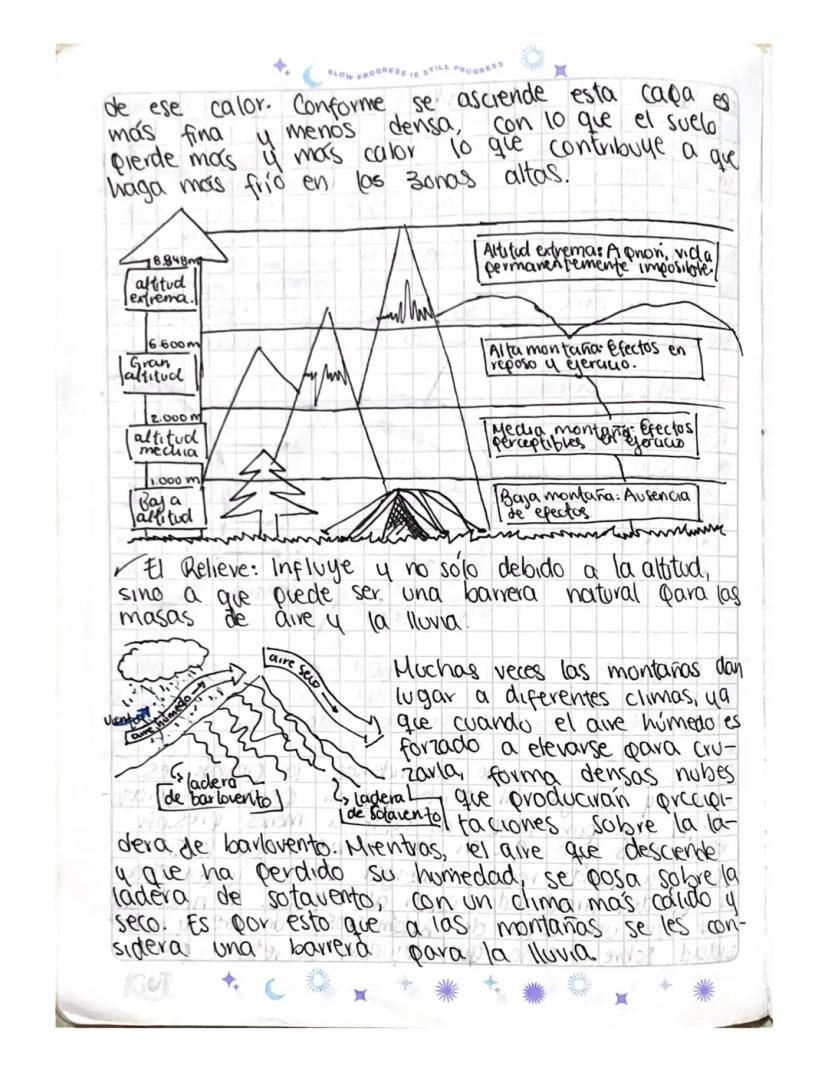 SLOW PROGRESS IS STILL PROGRESS
de ese calor. Conforme se asciende esta capa es
más fina y menos densa, con lo que el suelo
pierde más y más calor lo que contribuye a que
haga más frío en las zonas altas.
8.848m
altitud
extrema.
6.600m
Gran
altitud
2.000m
altitud
media
1.000m
Baja
altitud
Altitud extrema: A priori, vida
permanentemente imposible.
Alta montaña: Efectos en
reposo y ejercicio.
Media montaña: Efectos
perceptibles en ejercicio
Baja montaña: Ausencia
de efectos
✓ El Relieve: Influye y no sólo debido a la altitud,
sino a que puede ser una barrera natural para las
masas de aire y la lluvia.
aire seco
aire húmedo
ladera
de barlovento
ladera
de sotavento
Muchas veces las montañas dan
lugar a diferentes climas, ya
que cuando el aire húmedo es
forzado a elevarse para cru-
zarla, forma densas nubes
que producirán precipi-
taciones sobre la la-
dera de barlovento. Mientras, el aire que desciende
y que ha perdido su humedad, se posa sobre la
ladera de sotavento, con un clima más cálido y
seco. Es por esto que a las montañas se les con-
sidera una barrera para la lluvia.